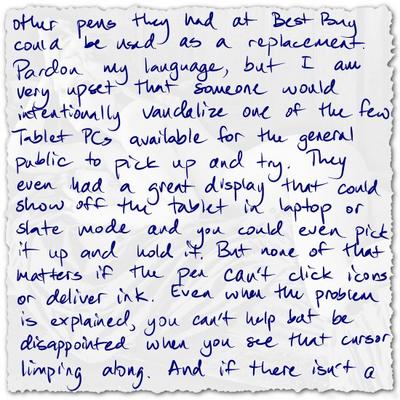 other pens they had at Best Buy
could be used as a replacement.
Pardon my language, but I am
very upset that someone would
intentionally vandalize one of the few
Tablet PCs available for the general
public to pick up and try. They
even had a great display that could
show off the tablet in laptop or
slate mode and you could even pick
it up and hold it. But none of that
matters if the pen can't click icons
or deliver ink. Even when the problem
is explained, you can't help but be
disappointed when you see that cursor
limping along. And if there isn't a